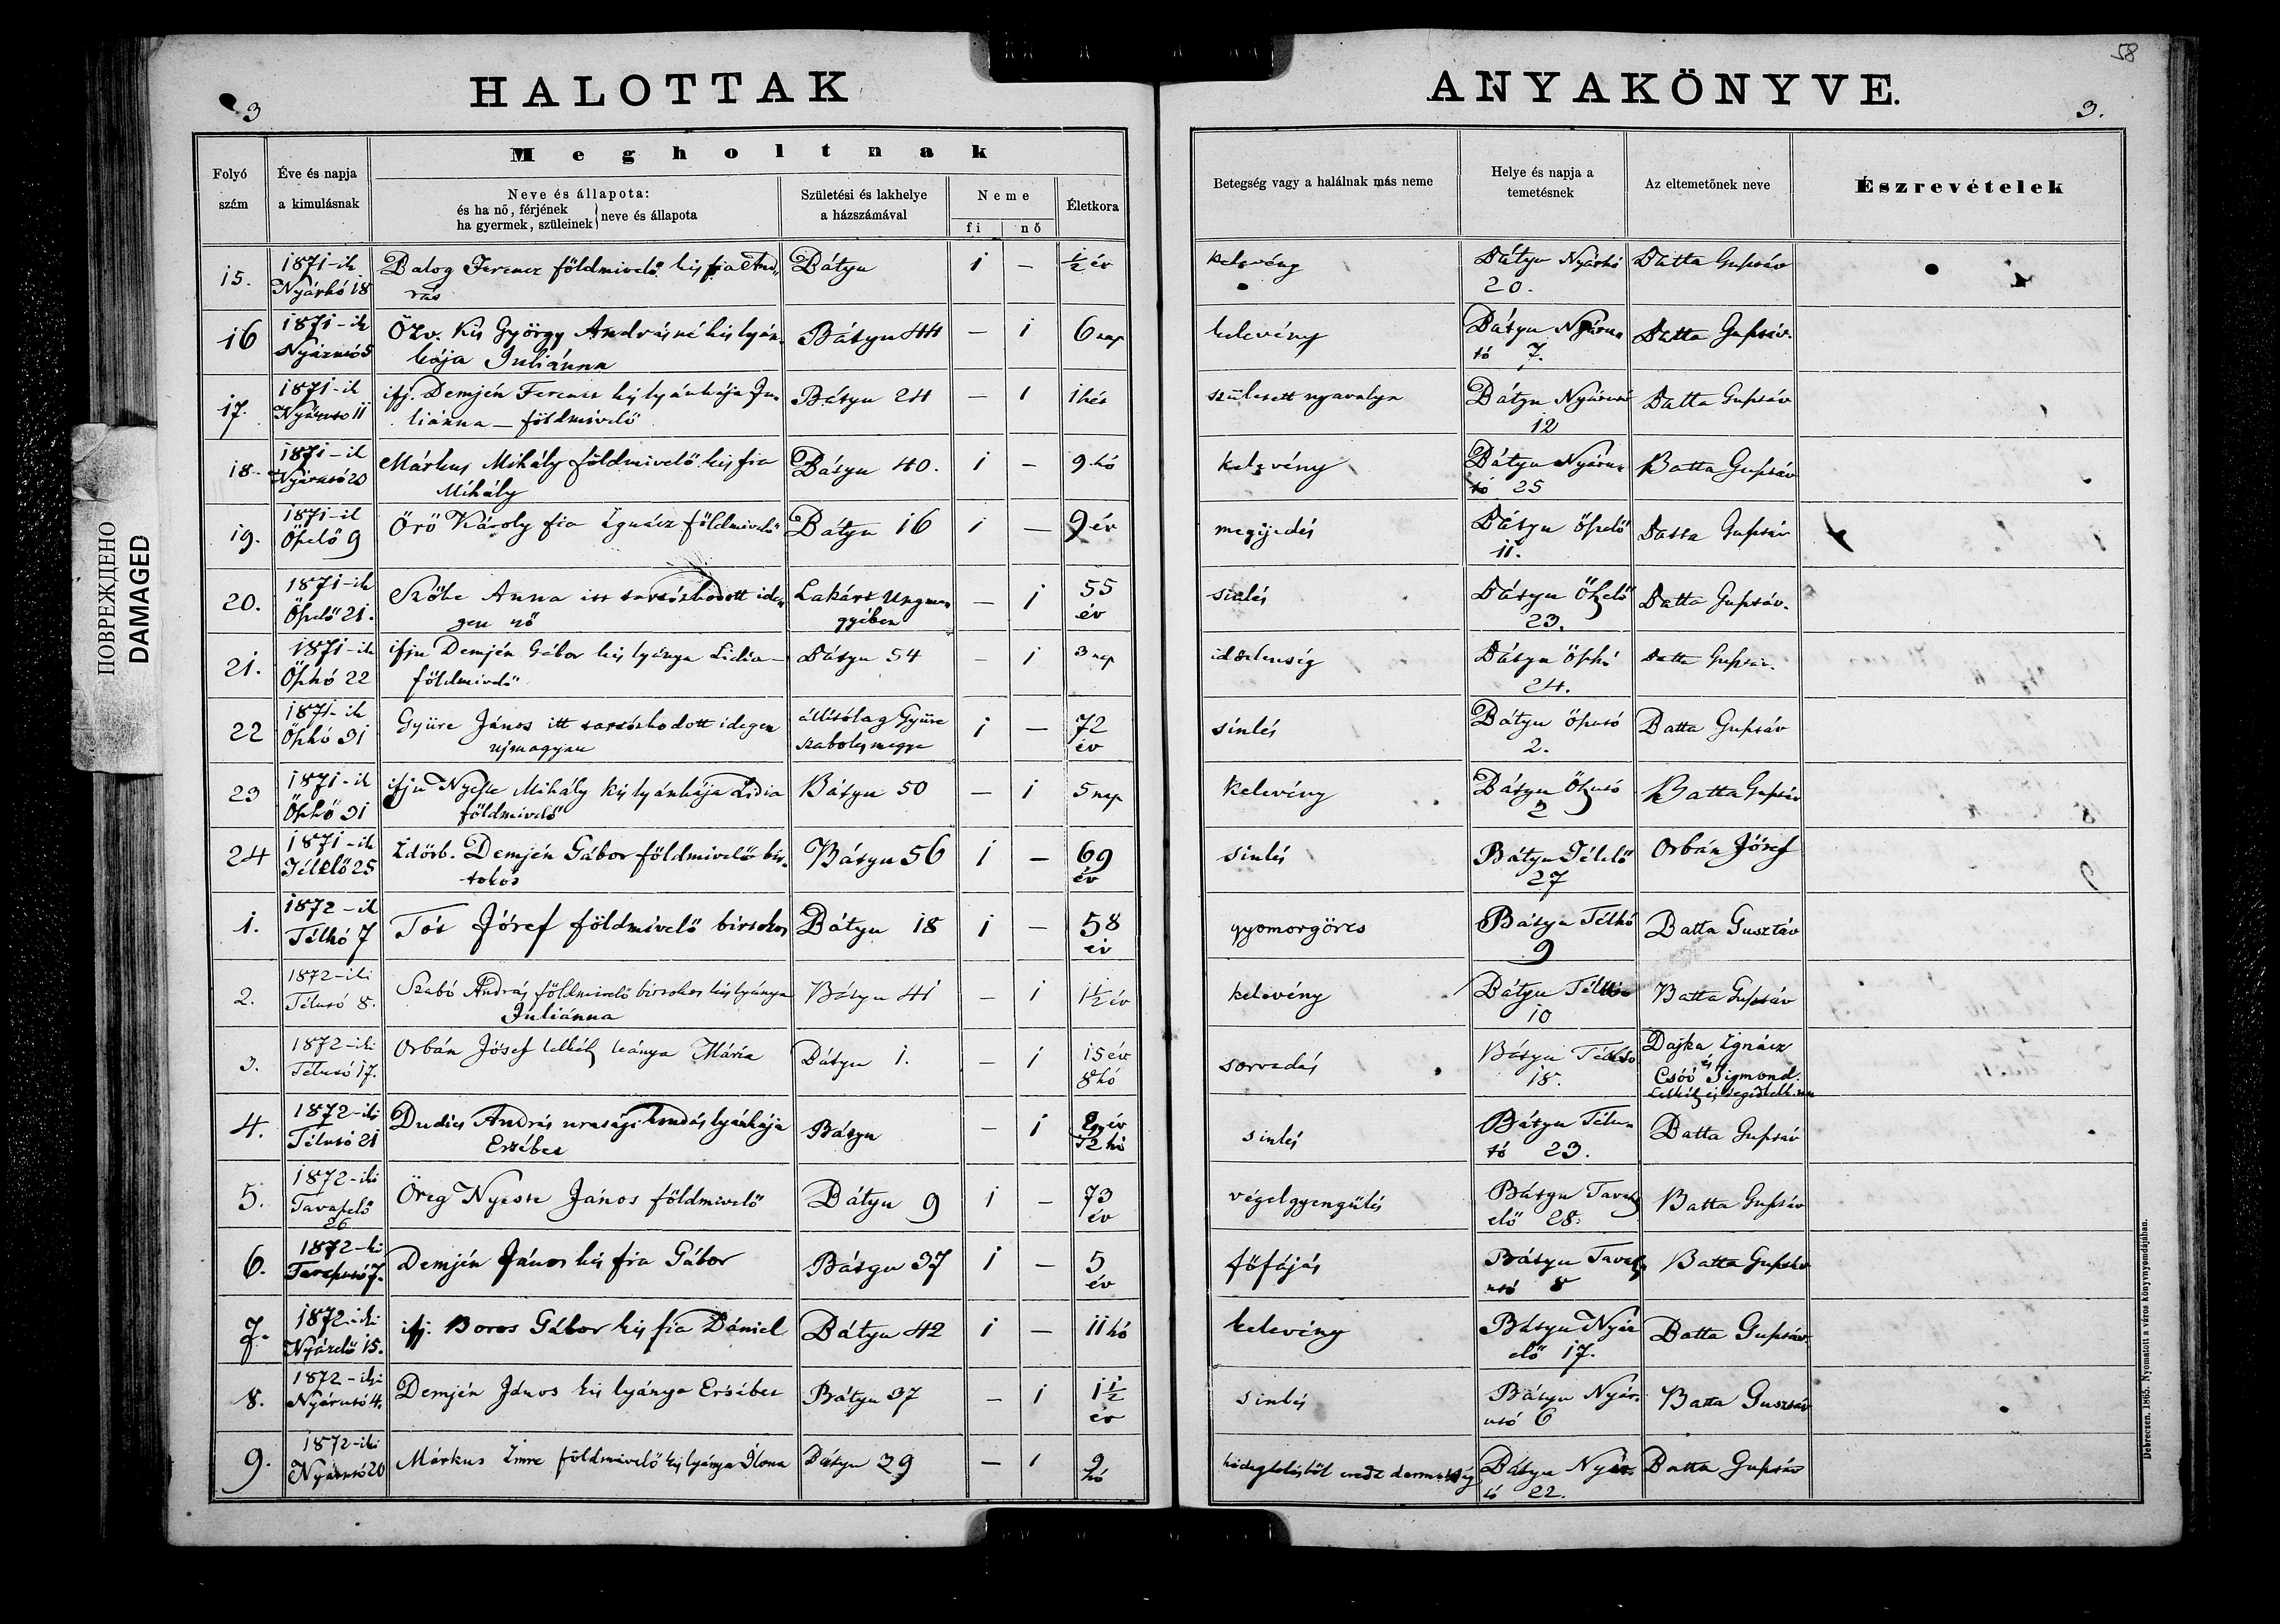 58
HALOTTAK ANYAKÖNYVE.
3 3.
ПОВРЕЖДЕНО
DAMAGED
Folyó szám
Éve és napja a kimulásnak
Megholtnak
Neve és állapota:
és ha nő, férjének
ha gyermek, szüleinek
neve és állapota
Születési és lakhelye
a házszámával
Neme
fi nő
Életkora
Betegség vagy a halálnak más neme
Helye és napja a
temetésnek
Az eltemetőnek neve
Észrevételek
15. 1871-ik Nyárhó 18 Balog Ferencz földmivelő kis fia András Bátyu 1 — ½ év kelevény Bátyu Nyárhó 20. Batta Gusztáv
16 1871-ik Nyárutó 5 Özv. Kis György Andrásné kis lyánkája Juliánna Bátyu 44 — 1 6 nap kelevény Bátyu Nyárutó 7. Batta Gusztáv
17. 1871-ik Nyárutó 11 ifj. Demjén Ferencz kis lyánkája Juliánna — földmivelő Bátyu 24 — 1 1 hét született nyavalya Bátyu Nyárutó 12 Batta Gusztáv
18. 1871-ik Nyárutó 23 Márkus Mihály földmivelő kis fia Mihály Bátyu 40. 1 — 9 hó kelevény Bátyu Nyárutó 25 Batta Gusztáv
19. 1871-ik Őszelő 9 Örö Károly fia Ignácz földmivelő Bátyu 16 1 — 9 év megijedés Bátyu őszelő 11. Batta Gusztáv
20. 1871-ik Őszelő 21. Szőke Anna itt tartózkodott idegen nő Lakárt Ungmegyében — 1 55 év sinlés Bátyu Őszelő 23. Batta Gusztáv.
21. 1871-ik Őszhó 22 ifju Demjén Gábor kis lyánya Lidia — földmivelő Bátyu 54 — 1 3 nap idétlenség Bátyu őszhó 24. Batta Gusztáv.
22 1871-ik Őszhó 31 Gyüre János itt tartózkodott idegen állitólag Gyüre Szabolcs megye 1 — 72 év sinlés Bátyu őszutó 2. Batta Gusztáv
23 1871-ik Őszhó 31 ifju Nyeste Mihály kis lyánkája Lidia földmivelő Bátyu 50 — 1 5 nap kelevény Bátyu Őszutó 2 Batta Gusztáv
24 1871-ik Télelő 25 Idősb. Demjén Gábor földmivelő birtokos Bátyu 56 1 — 69 év sinlés Bátyu Télelő 27 Orbán Jósef
1. 1872-ik Télhó 7 Tót Jósef földmivelő birtokos Bátyu 18 1 — 58 év gyomorgörcs Bátyu Télhó 9 Batta Gusztáv
2. 1872-iki Télutó 8. Szabó András földmivelő birtokos kis lyánya Juliánna Bátyu 41 — 1 1½ év kelevény Bátyu 10 Batta Gusztáv
3. 1872-iki Télutó 17. Orbán Jósef lelkész leánya Mária Bátyu 1. — 1 15 év 8 hó sorvadás Bátyu Télutó 18. Dajka Ignácz és Csóó Sigmond. Lelkész és segédlelk.
4. 1872-iki Télutó 21 Dudics András urasági lyánkája Erzsébet Bátyu — 1 sinlés Bátyu Télutó 23. Batta Gusztáv
5. 1872-iki Tavaszelő 26 Öreg Nyeste János földmivelő Bátyu 9 1 — 73 év végelgyengülés Bátyu Tavaszelő 28. Batta Gusztáv
6. 1872-ki Tavaszutó 7. Demjén János kis fia Gábor Bátyu 37 1 — 5 év főfájás Bátyu Tavaszutó 8 Batta Gusztáv
7. 1872-iki Nyárelő 15. ifj. Boros Gábor kis fia Dániel Bátyu 42 1 — 11 hó kelevény Bátyu Nyárelő 17. Batta Gusztáv
8. 1872-iki Nyárutó 4. Demjén János kis lyánya Ersébet Bátyu 37 — 1 1½ év sinlés Bátyu Nyárutó 6 Batta Gusztáv
9. 1872-iki Nyárutó 20 Márkus Imre földmivelő kis lyánya Ilona Bátyu 39 — 1 9 hó Bátyu 22. Batta Gusztáv
Debreczen. 1865. Nyomatott a város könyvnyomdájában.